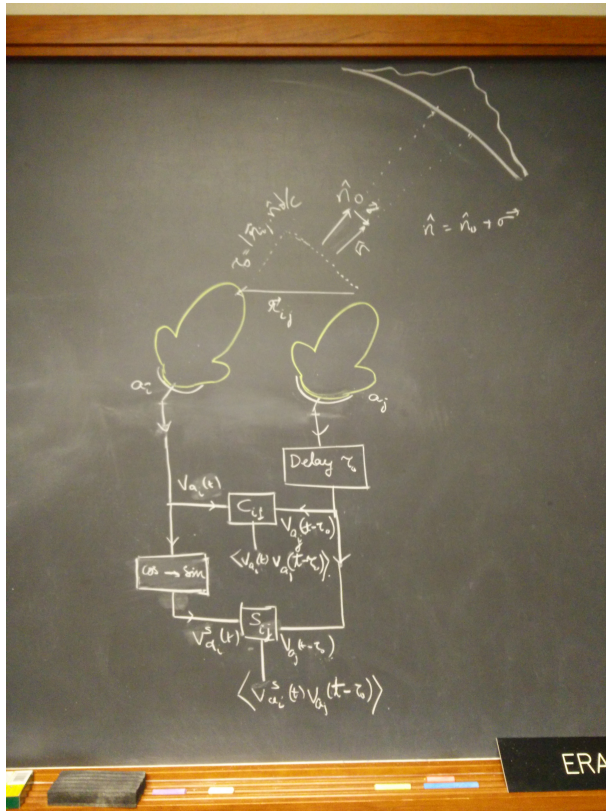 n̂₀
σ⃗
σ⃗
τ₀ = |r⃗ᵢⱼ·n̂₀|/c
n̂ = n̂₀ + σ⃗
r⃗ᵢⱼ
aᵢ
aⱼ
Delay τ₀
V_{aᵢ}(t)
Cᵢⱼ
V_{aⱼ}(t-τ₀)
⟨V_{aᵢ}(t) V_{aⱼ}(t-τ₀)⟩
cos → Sin
V^S_{aᵢ}(t)
Sᵢⱼ
V_{aⱼ}(t-τ₀)
⟨V^S_{aᵢ}(t) V_{aⱼ}(t-τ₀)⟩
ERA